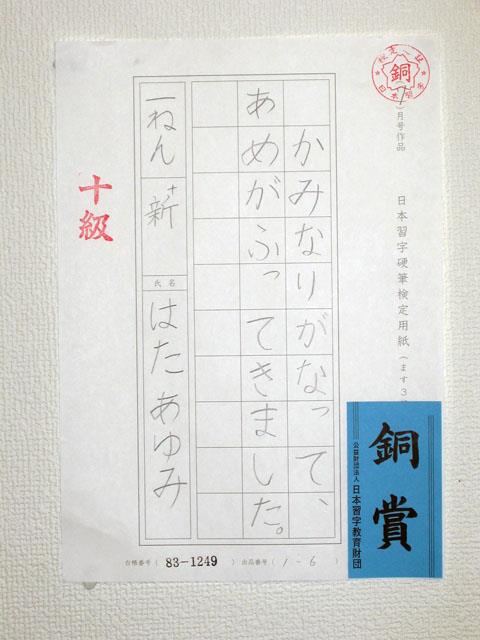 銅
(1)月号作品
日本習字硬筆検定用紙(ます3
かみなりがなって、
あめがふってきました。
一ねん
新
氏名
はたあゆみ
十級
台帳番号(83-1249)出品番号(1-6)
銅賞
公益財団法人日本習字教育財団